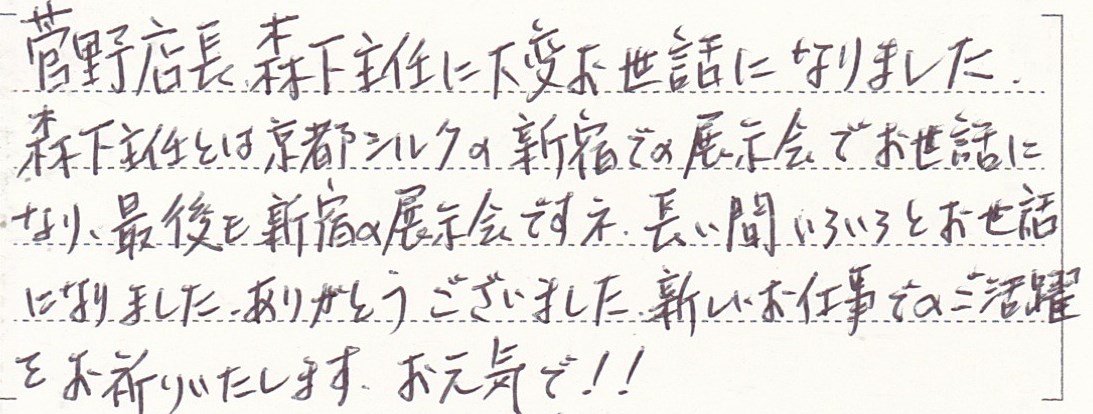 菅野店長、森下主任に大変お世話になりました.
森下主任とは京都シルクの新宿での展示会でお世話に
なり、最後も新宿の展示会ですネ.長い間いろいろとお世話
になりました.ありがとうございました.新しいお仕事でのご活躍
をお祈りいたします.お元気で!!